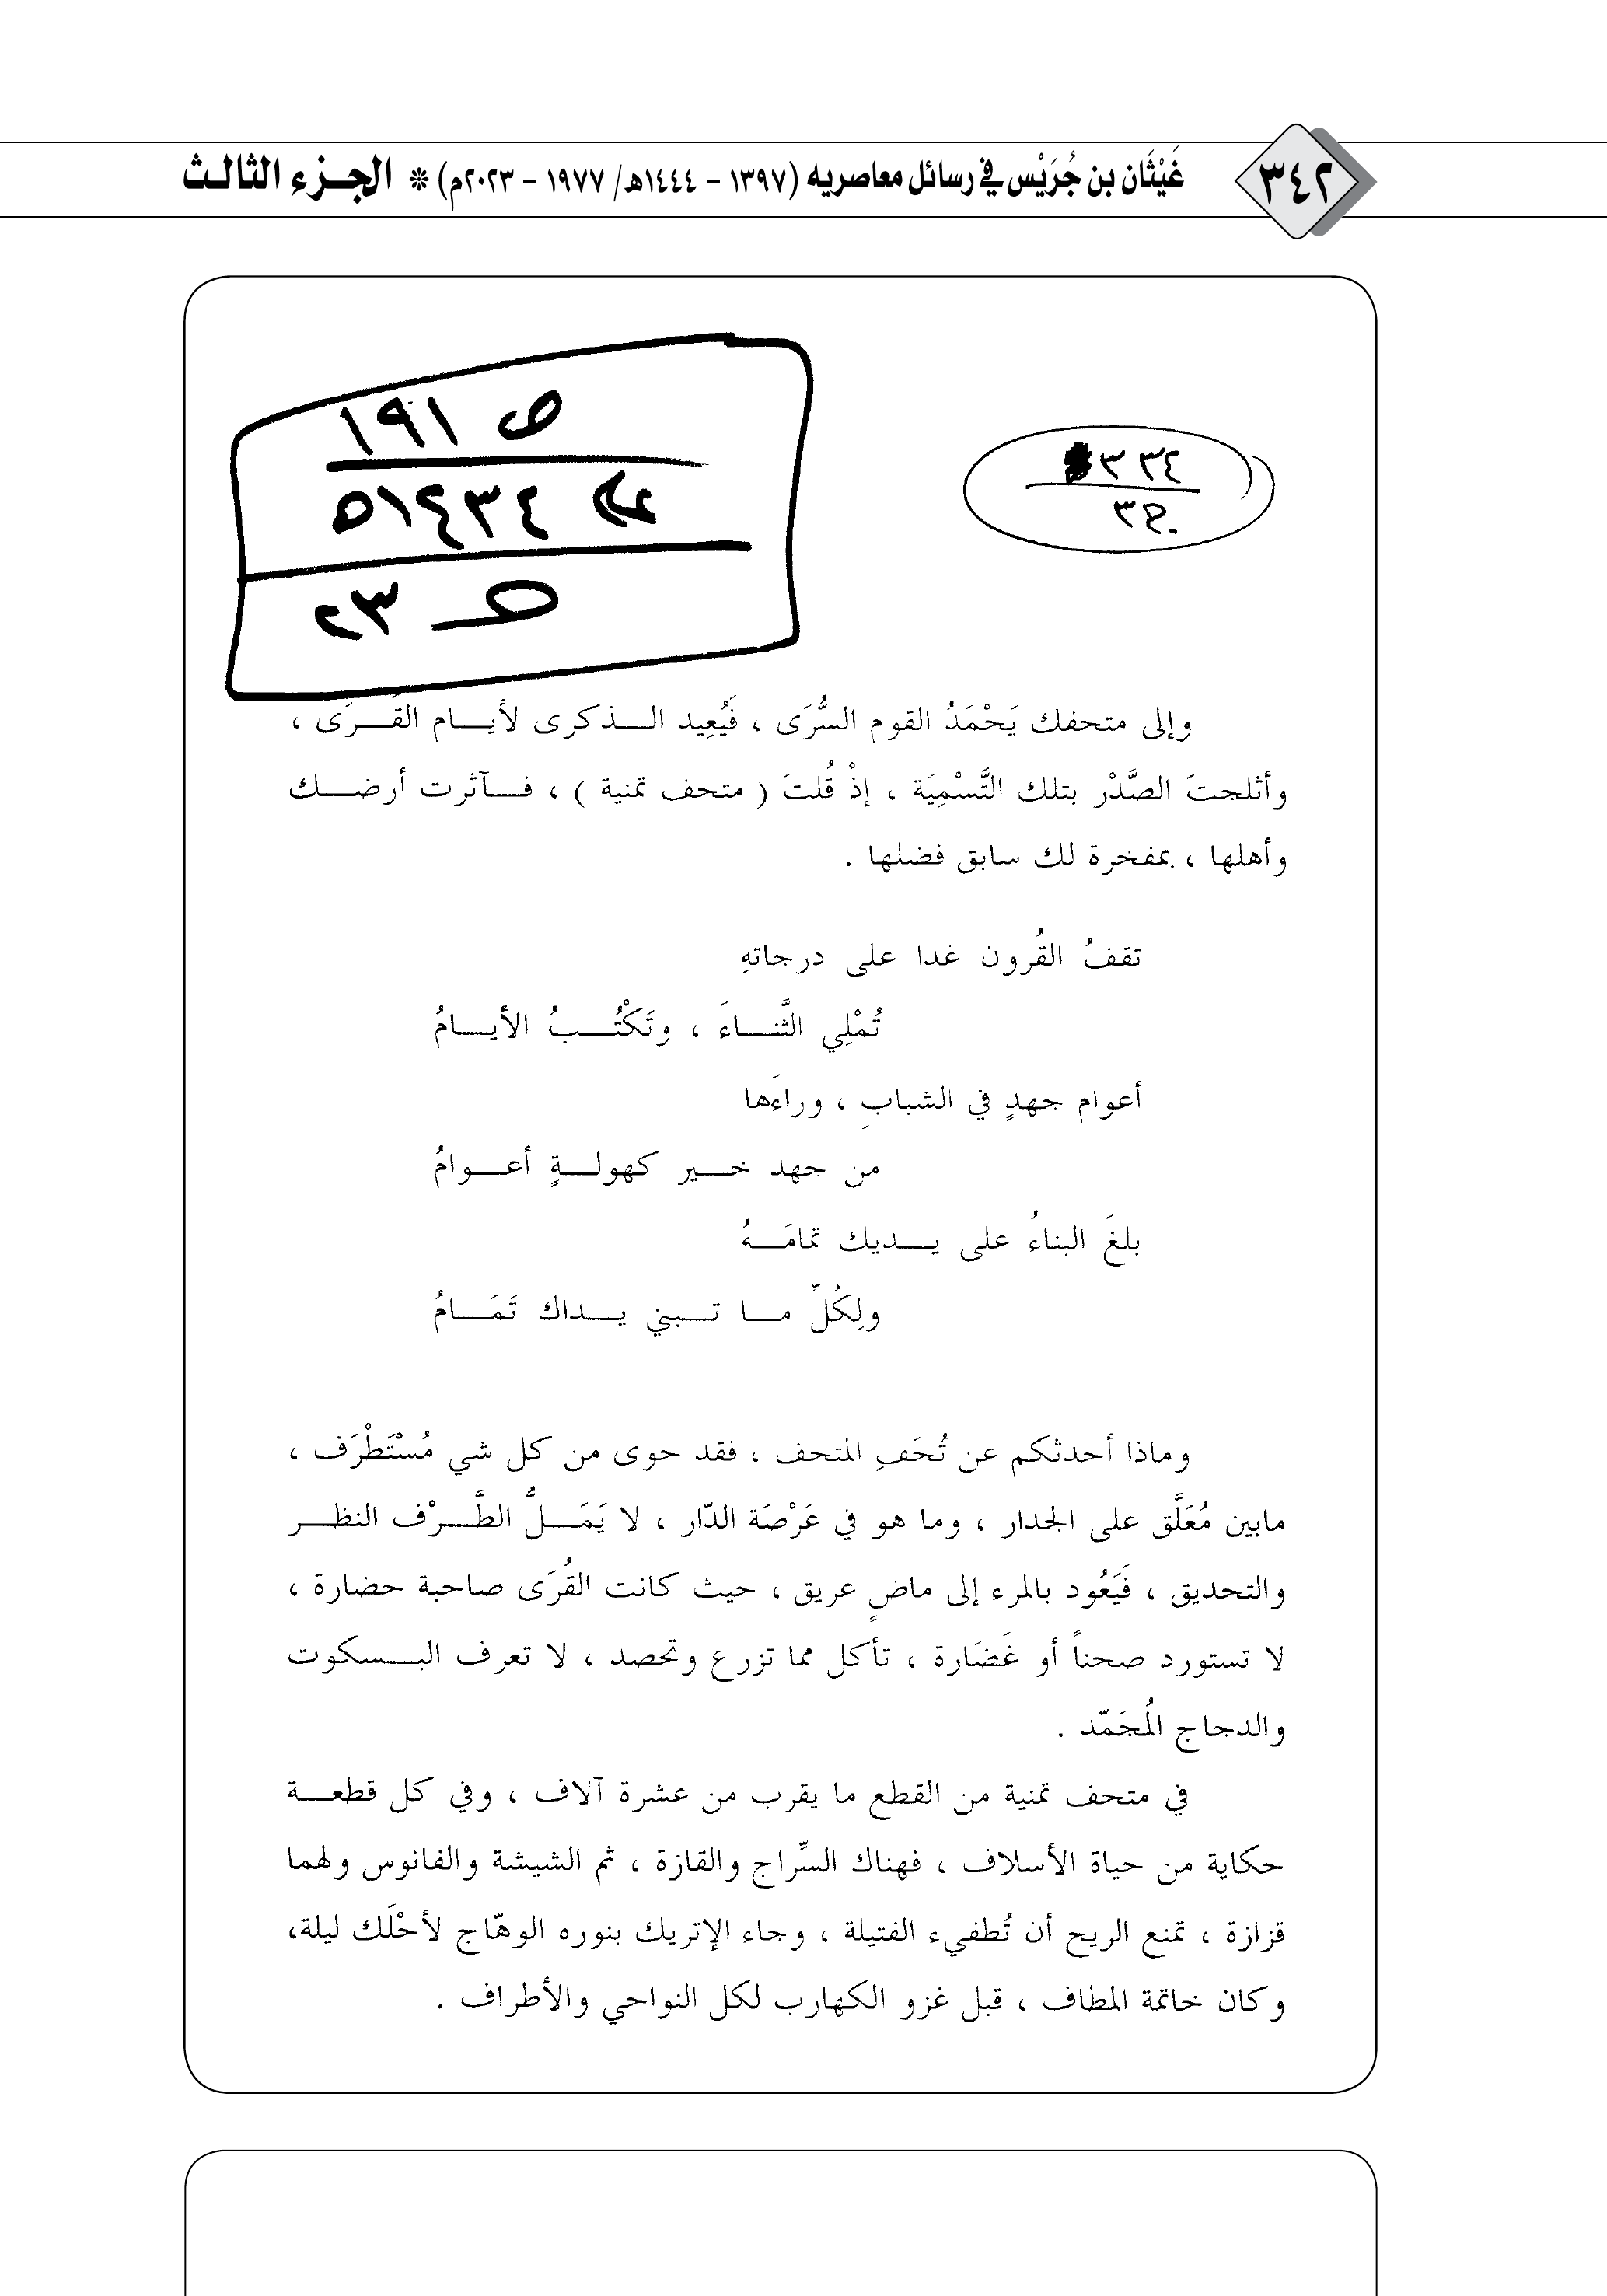 ٣٤٢ غَيْثَان بن جُرَيْس في رسائل معاصريه (١٣٩٧ - ١٤٤٤هـ/ ١٩٧٧ - ٢٠٢٣م) * الجزء الثالث
ص ١٩١
٢٣
وإلى متحفك يَحْمَدُ القوم السُّرَى ، فَيُعِيد الـذكرى لأيـام القُـرَى ،
وأثلجتَ الصَّدْر بتلك التَّسْمِيَة ، إذْ قُلتَ ( متحف تمنية ) ، فـآثرت أرضـك
وأهلها ، بمفخرة لك سابق فضلها .
تقفُ القُرون غدا على درجاتهِ
تُمْلِي الثَّنـاءَ ، وتَكْتُـبُ الأيـامُ
أعوام جهدٍ في الشبابِ ، وراءَها
من جهد خـير كهولـةٍ أعـوامُ
بلغَ البناءُ على يـديك تمامَـهُ
ولِكُلّ مـا تـبني يـداك تَمَـامُ
وماذا أحدثكم عن تُحَفِ المتحف ، فقد حوى من كل شي مُسْتَطْرَف ،
مابين مُعَلَّق على الجدار ، وما هو في عَرْصَة الدّار ، لا يَمَـلُّ الطَّـرْف النظـر
والتحديق ، فَيَعُود بالمرء إلى ماضٍ عريق ، حيث كانت القُرَى صاحبة حضارة ،
لا تستورد صحناً أو غَضَارة ، تأكل مما تزرع وتحصد ، لا تعرف البـسكوت
والدجاج الُمجَمّد .
في متحف تمنية من القطع ما يقرب من عشرة آلاف ، وفي كل قطعـة
حكاية من حياة الأسلاف ، فهناك السِّراج والقازة ، ثم الشيشة والفانوس ولهما
قزازة ، تمنع الريح أن تُطفيء الفتيلة ، وجاء الإتريك بنوره الوهّاج لأحْلَك ليلة،
وكان خاتمة المطاف ، قبل غزو الكهارب لكل النواحي والأطراف .